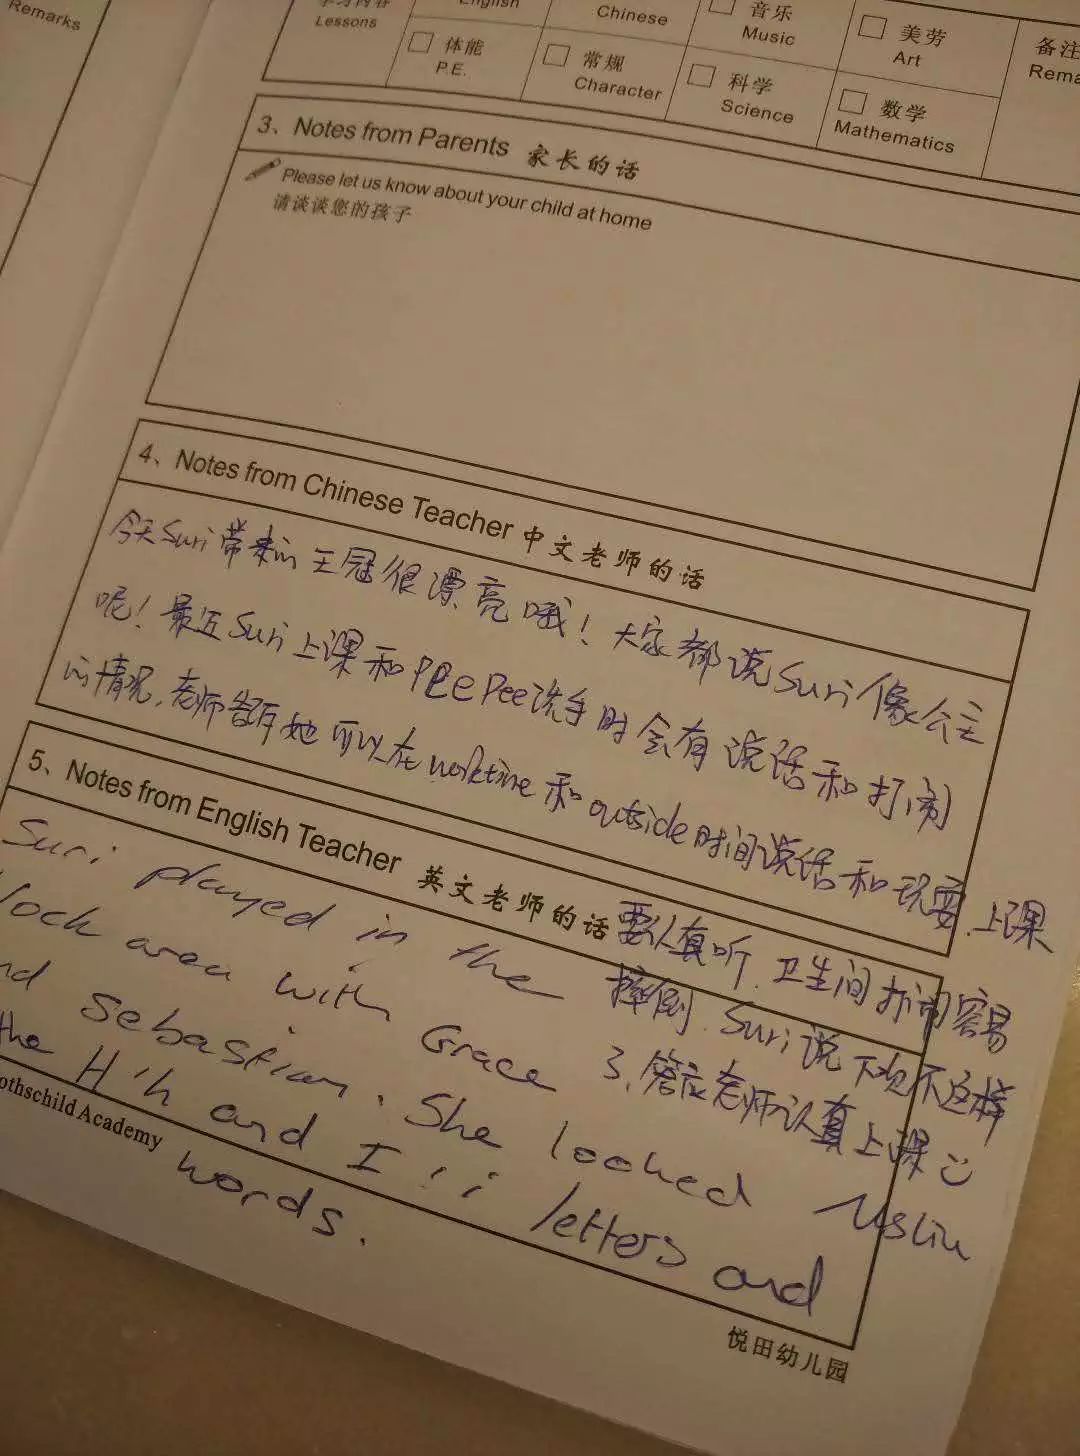 Remarks
Lessons
English
Chinese
音乐
Music
美劳
Art
备注
Rema
体能
P.E.
常规
Character
科学
Science
数学
Mathematics
3、Notes from Parents 家长的话
Please let us know about your child at home
请谈谈您的孩子
4、Notes from Chinese Teacher 中文老师的话
今天Suri带来的王冠很漂亮哦！大家都说Suri像公主
呢！最近Suri上课和PeePee洗手时会有说话和打闹
的情况,老师告诉她可以在worktime和outside时间说话和玩耍,上课
要认真听,卫生间打闹容易
摔倒.Suri说下次不这样
了,答应老师认真上课
MsLiu
5、Notes from English Teacher 英文老师的话
Suri played in the
lock area with Grace
nd Sebastian. She looked
the H'h and I i letters and
words.
othschild Academy
悦田幼儿园